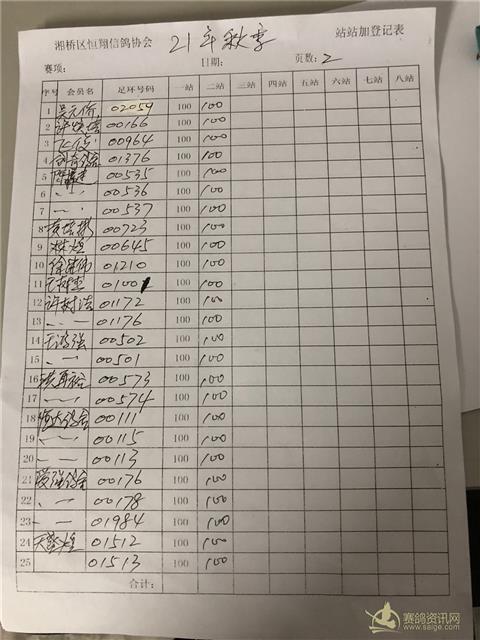 湘桥区恒翔信鸽协会 21年秋季 站站加登记表
赛项: 日期: 页数: 2
序号 会员名 足环号码 一站 二站 三站 四站 五站 六站 七站 八站
1 吴元价 02059 100 100
2 00166 100 100
3 飞信 00964 100 100
4 01376 100 100
5 00535 100 100
6 〃 00536 100 100
7 〃 00537 100 100
8 黄培彬 00723 100 100
9 林煌 00645 100 100
10 徐英伟 01210 100 100
11 01001 100 100
12 许树浩 01172 100 100
13 〃 01176 100 100
14 00502 100 100
15 〃 00501 100 100
16 00573 100 100
17 〃 00574 100 100
18 恒达鸽舍 00111 100 100
19 〃 00115 100 100
20 〃 00113 100 100
21 爱强鸽舍 00176 100 100
22 〃 00178 100 100
23 〃 01984 100 100
24 01512 100 100
25 01513 100 100
合计:
赛鸽资讯网
www.saige.com